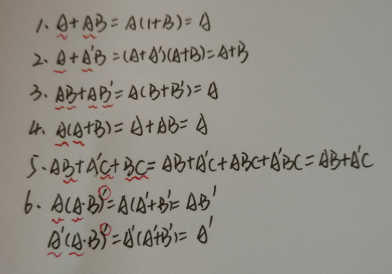 1. A+AB=A(1+B)=A
2. A+A'B=(A+A')(A+B)=A+B
3. AB+AB'=A(B+B')=A
4. A(A+B)=A+AB=A
5. AB+A'C+BC=AB+A'C+ABC+A'BC=AB+A'C
6. A(A·B)'=A(A'+B')=AB'
A'(A·B)'=A'(A'+B')=A'